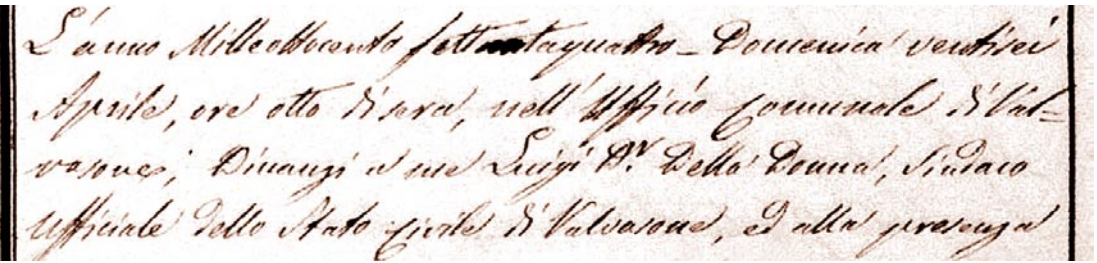 L'anno Milleottocento settantaquattro - Domenica ventisei
Aprile, ore otto di sera, nell'Ufficio Comunale di Val=
vasone; Dinanzi a me Luigi Dr. Della Donna, Sindaco
Ufficiale dello Stato Civile di Valvasone, ed alla presenza